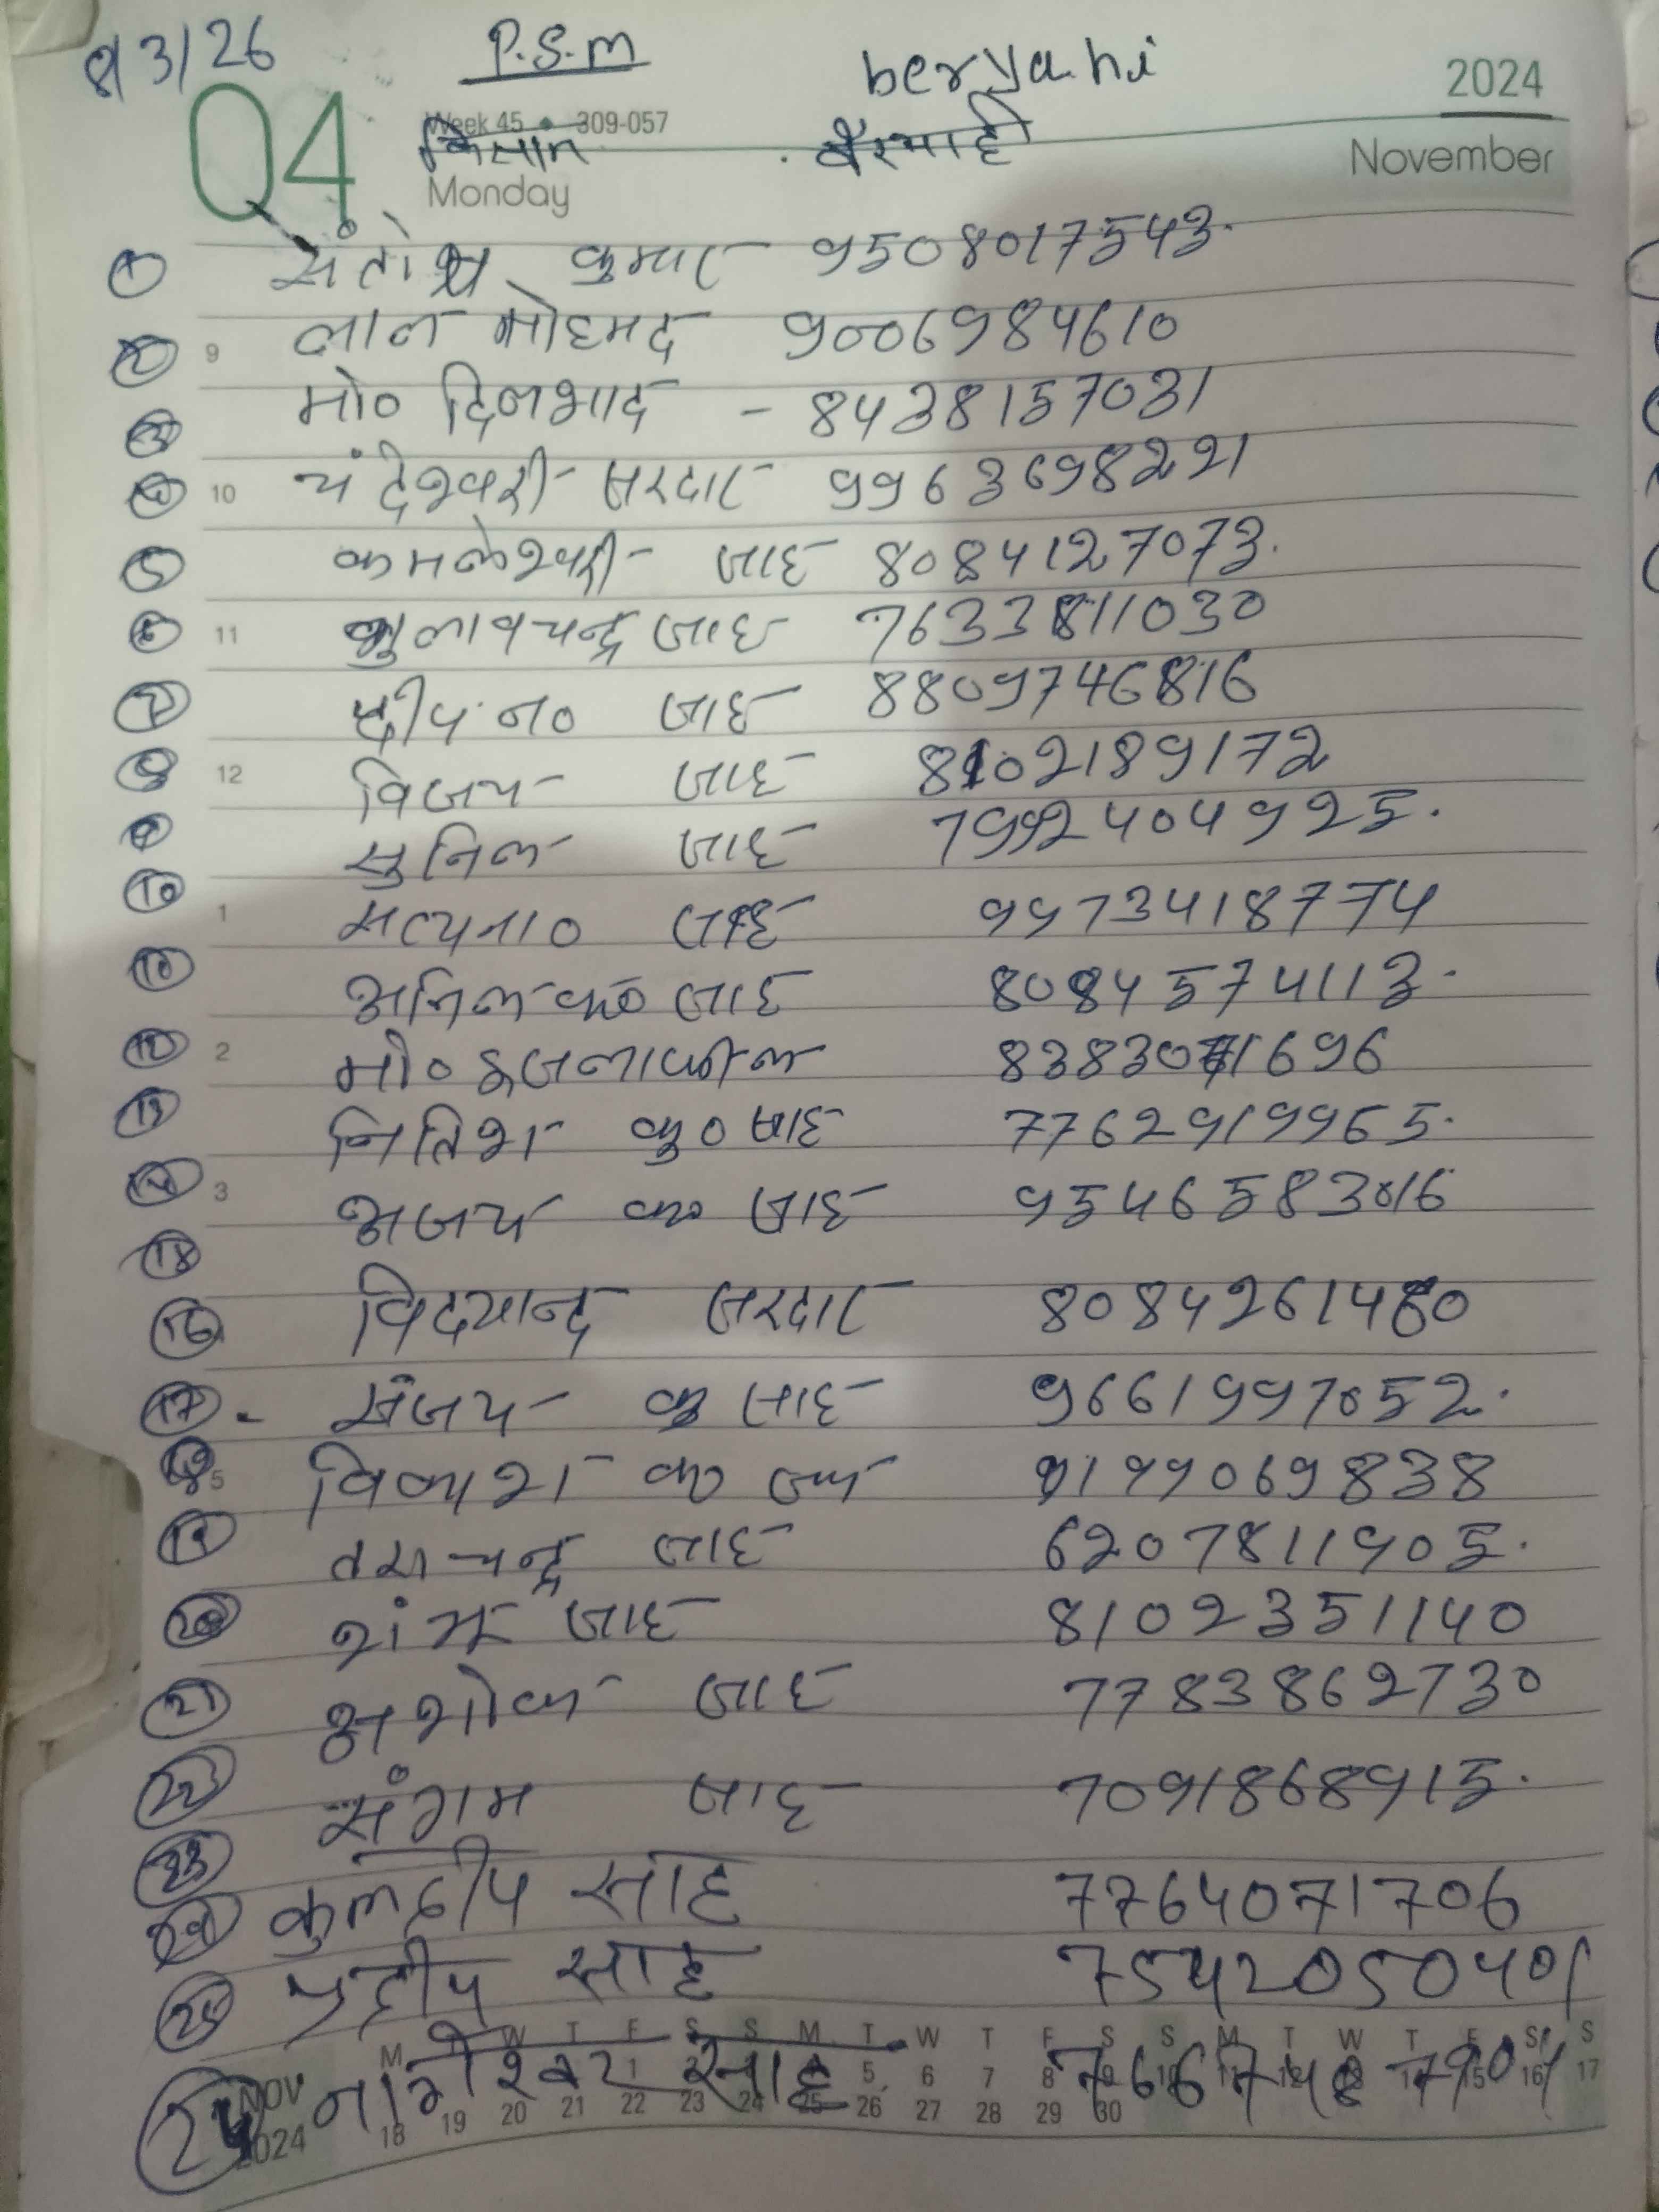 8/3/26 P.S.M beryahi 2024
04 Week 45 309-057
किसान बैरयाही November
Monday
1 संतोष कुमार 9508017543.
2 9 लाल मोहमद 9006984610
3 मो० दिलशाद - 8438157031
4 10 चंदेश्वरी सरदार 9963698221
5 कमलेश्वरी साह 8084127073.
6 11 गुलाबचन्द्र साह 7633811030
7 दीप ना० साह 8809746816
8 12 विजय साह 8102189172
9 सुनिल साह 7992404925.
10 1 सत्यना० साह 9973418774
10 अनिल क० साह 8084574113.
12 2 मो० 8383071696
13 नितिश कु० साह 7762919965.
14 3 अजय क० साह 9546583016
15
16 विदयानन्द सरदार 8084261480
17 - संजय कु साह 9661997052.
18 5 विकाश क० 9199069838
19 ताराचन्द्र साह 6207811905.
20 शंभू साह 8102351140
21 अशोक साह 7783862730
22 संगम साह 7091868915.
23
24 कुलदीप साह 7764071706
25 प्रदीप साह 7542050401
M T W T F S S M T W T F S S M T W T F S S
24 नागेश्वर साह 7667487904
NOV 1 5 6 7 8 9 10 11 12 13 14 15 16 17
2024 18 19 20 21 22 23 24 25 26 27 28 29 30